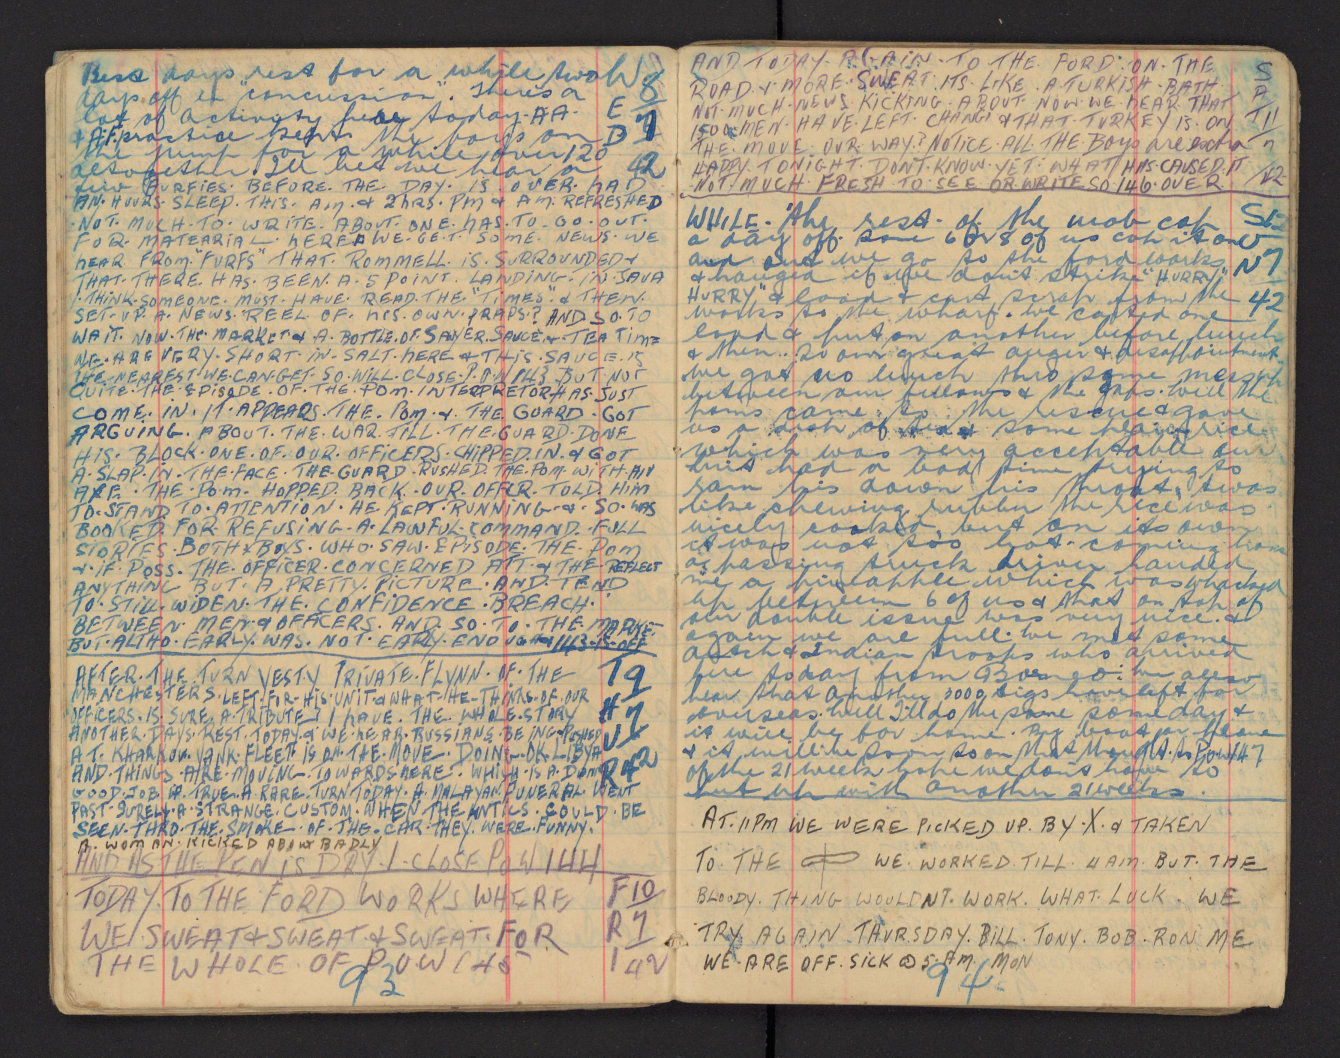 Best days rest for a while two W8
days off is "concussion". There's a
lot of activity here today. AA. E
& A.F. practice kept the boys on D 7
the jump for a while over 120
altogether. I'll bet we hear a 42
few FURFIES BEFORE THE DAY IS OVER HAD
AN HOURS SLEEP THIS AM & 2 HRS PM & AM REFRESHED
NOT MUCH TO WRITE ABOUT ONE HAS TO GO OUT
FOR MATEARIAL HERE & WE GET SOME NEWS WE
HEAR FROM "FURFS" THAT ROMMELL IS SURROUNDED &
THAT THERE HAS BEEN A 5 POINT LANDING IN JAVA
I THINK SOMEONE MUST HAVE READ THE "TIMES" & THEN
SET UP A NEWS REEL OF HIS OWN PRAPS? AND SO TO
WAIT NOW THE MARKET & A BOTTLE OF SAYER SAUCE & TEA TIME
WE ARE VERY SHORT IN SALT HERE & THIS SAUCE IS
THE NEAREST WE CAN GET SO WILL CLOSE P.O.W 143 BUT NOT
QUITE THE EPISODE OF THE POM INTERPRETOR HAS JUST
COME IN IT APPEARS THE POM & THE GUARD GOT
ARGUING ABOUT THE WAR TILL THE GUARD DONE
HIS BLOCK ONE OF OUR OFFICERS CHIPPED IN & GOT
A SLAP IN THE FACE THE GUARD RUSHED THE POM WITH AN
AXE THE POM HOPPED BACK OUR OFFCR TOLD HIM
TO STAND TO ATTENTION HE KEPT RUNNING & SO WAS
BOOKED FOR REFUSING A LAWFUL COMMAND FULL
STORIES BOTH & BOYS WHO SAW EPISODE THE POM
& IF POSS THE OFFICER CONCERNED ATT & THE REFLECT
ANYTHING BUT A PRETTY PICTURE AND TEND
TO STILL WIDEN THE CONFIDENCE BREACH
BETWEEN MEN & OFFICERS AND SO TO THE MARKE-
BUT ALTHO EARLY WAS NOT EARLY ENOUGH & 143 IS OFF
AFTER THE TURN YESTY PRIVATE FLYNN OF THE T9
MANCHESTERS LEFT FOR HIS UNIT & WHAT HE THINKS OF OUR
OFFICERS IS SURE A TRIBUTE? I HAVE THE WHOLE STORY H
ANOTHER DAYS REST TODAY & WE HEAR RUSSIANS BEING PUSHED U 7
AT KHARKOV YANK FLEET IS ON THE MOVE DOING OK LIBYA
AND THINGS ARE MOVING TOWARDS HERE WHICH IS A DAMN R 42
GOOD JOB IF TRUE A RARE TURN TODAY A MALAYAN FUNERAL WENT
PAST SURELY A STRANGE CUSTOM WHEN THE ANTICS COULD BE
SEEN THRO THE SMOKE OF THE CAR THEY WERE FUNNY
A WOMAN KICKED ABOUT BADLY
AND AS THE PEN IS DRY I CLOSE POW 144
TODAY TO THE FORD WORKS WHERE F 10
WE SWEAT & SWEAT & SWEAT FOR R 7
THE WHOLE OF P.O.W 145 I 42
93
AND TODAY AGAIN TO THE FORD ON THE S
ROAD & MORE SWEAT ITS LIKE A TURKISH BATH A
NOT MUCH NEWS KICKING ABOUT NOW WE HEAR THAT
1500 MEN HAVE LEFT CHANGI & THAT TURKEY IS ON T 11
THE MOVE OUR WAY? NOTICE ALL THE Boys are not
HAPPY TONIGHT DONT KNOW YET WHAT HAS CAUSED IT
NOT MUCH FRESH TO SEE OR WRITE SO 146 OVER 42
WHILE the rest of the mob cop S 12
a day off some 6 or 8 of us cop it on U
and out we go to the ford works
& hanged if we dont strike "HURRY N 7
HURRY" & load & cart scrap from the 42
works to the wharf. We carted one
load & put on another before lunch
& then to our great anger & disappointment
we got no lunch thro some mess up
between our fellows & the Japs well the
poms came to the rescue & gave
us a dish of tea & some plain rice
which was very acceptable our
had a bad time trying to
ram his down his throat twas
like chewing rubber the rice was
nicely cooked but on its own
it was not too hot coming home
a passing truck driver handed
me a pineapple which was whacked
up between 6 of us & that on top of
our double issue was very nice &
again we are full we met some
dutch & Indian troops who arrived
here today from Borneo. We also
hear that another 2000 digs have left for
overseas. Well I'll do the same some day &
it will be for home. By boat or plane
& it will be soon so on that thought is POW 147
of the 21 week hope we dont have to
put up with another 21 weeks.
AT 11PM WE WERE PICKED UP BY X & TAKEN
TO THE WE WORKED TILL 4 AM BUT THE
BLOODY THING WOULDNT WORK WHAT LUCK WE
TRY AGAIN THURSDAY BILL TONY BOB RON ME
WE ARE OFF SICK @ 5 AM MON
94